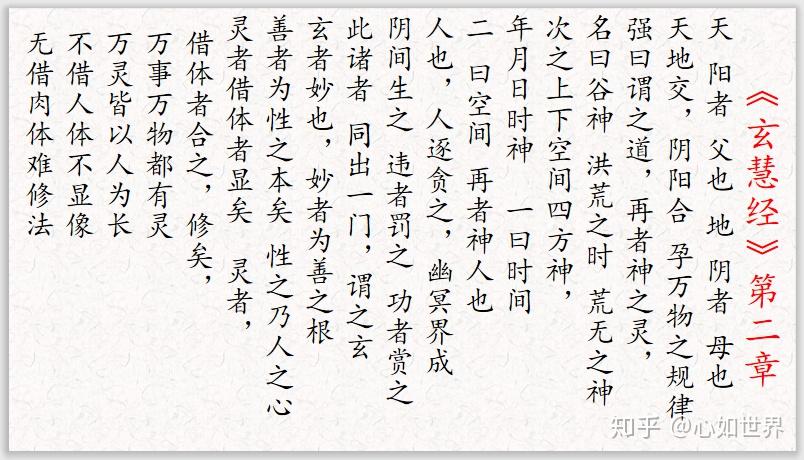 《玄慧经》第二章
天 阳者 父也 地 阴者 母也
天地交，阴阳合 孕万物之规律
强曰谓之道，再者神之灵，
名曰谷神 洪荒之时 荒无之神
次之上下空间四方神，
年月日时神 一曰时间
二 曰空间 再者神人也
人也，人逐贪之，幽冥界成
阴间生之 违者罚之 功者赏之
此诸者 同出一门，谓之玄
玄者妙也，妙者为善之根
善者为性之本矣 性之乃人之心
灵者借体者显矣 灵者，
借体者合之，修矣，
万事万物都有灵
万灵皆以人为长
不借人体不显像
无借肉体难修法
知乎 @心如世界